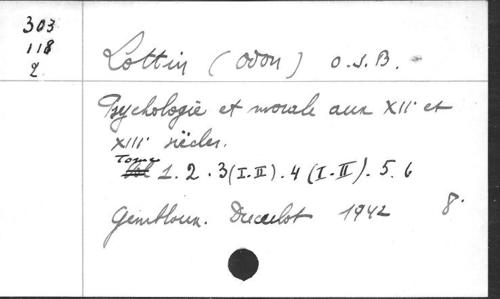 303
118
2
Lottin (Odon) O.S.B.
Psychologie et morale aux XII. et
XIII. siècles.
Tome
1. 2. 3 (I-II). 4 (I-II). 5. 6
Gembloux. Duculot 1942 8.